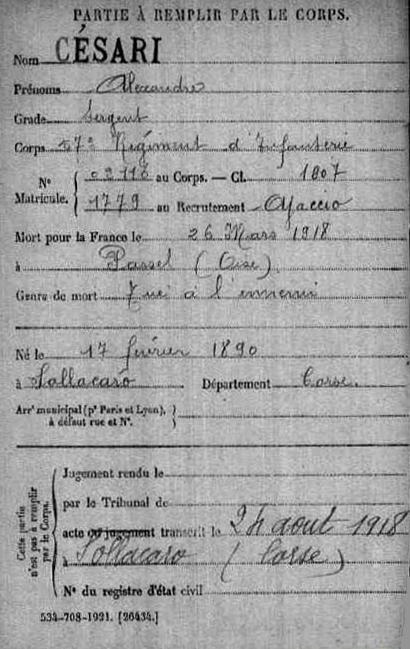 PARTIE À REMPLIR PAR LE CORPS.
Nom CÉSARI
Prénoms Alexandre
Grade Sergent
Corps 57e Régiment d'Infanterie
No 02710 au Corps. — Cl. 1807
Matricule. 1779 au Recrutement Ajaccio
Mort pour la France le 26 Mars 1918
à Passel (Oise)
Genre de mort Tué à l'ennemi
Né le 17 février 1890
à Sollacaro Département Corse.
Arrt municipal (pr Paris et Lyon),
à défaut rue et No.
Cette partie
n'est pas à remplir
par le Corps.
Jugement rendu le
par le Tribunal de
acte ou jugement transcrit le 24 août 1918
à Sollacaro (Corse)
No du registre d'état civil
534-708-1921. [26434.]